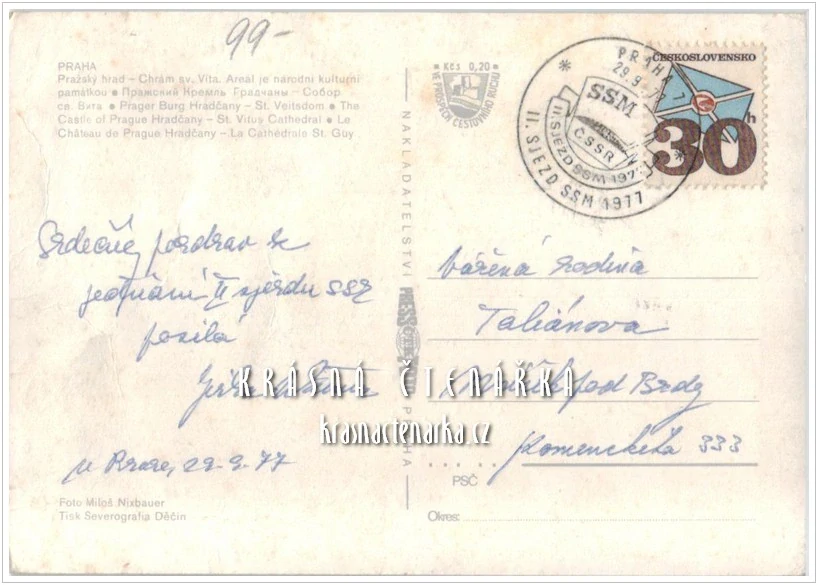 99-
PRAHA
Pražský hrad – Chrám sv. Víta. Areál je národní kulturní
památkou ● Пражский Кремль Градчаны – Собор
св. Вита ● Prager Burg Hradčany – St. Veitsdom ● The
Castle of Prague Hradčany – St. Vitus Cathedral ● Le
Château de Prague Hradčany – La Cathédrale St. Guy
Kčs 0,20
VE PROSPĚCH CESTOVNÍHO RUCHU
NAKLADATELSTVÍ
PRAHA
PRAHA
29.9.77
SSM
ČSSR
II. SJEZD SSM 1977
II. SJEZD SSM 1977
ČESKOSLOVENSKO
30h
Srdečný pozdrav ze
jednání II sjezdu SSM
posílá
Jirka
v Praze, 29.9.77
Vážená rodina
Taliánova
pod Brdy
Komenského 333
KRÁSNÁ ČTENÁŘKA
krasnactenarka.cz
PSČ
Okres:
Foto Miloš Nixbauer
Tisk Severografia Děčín